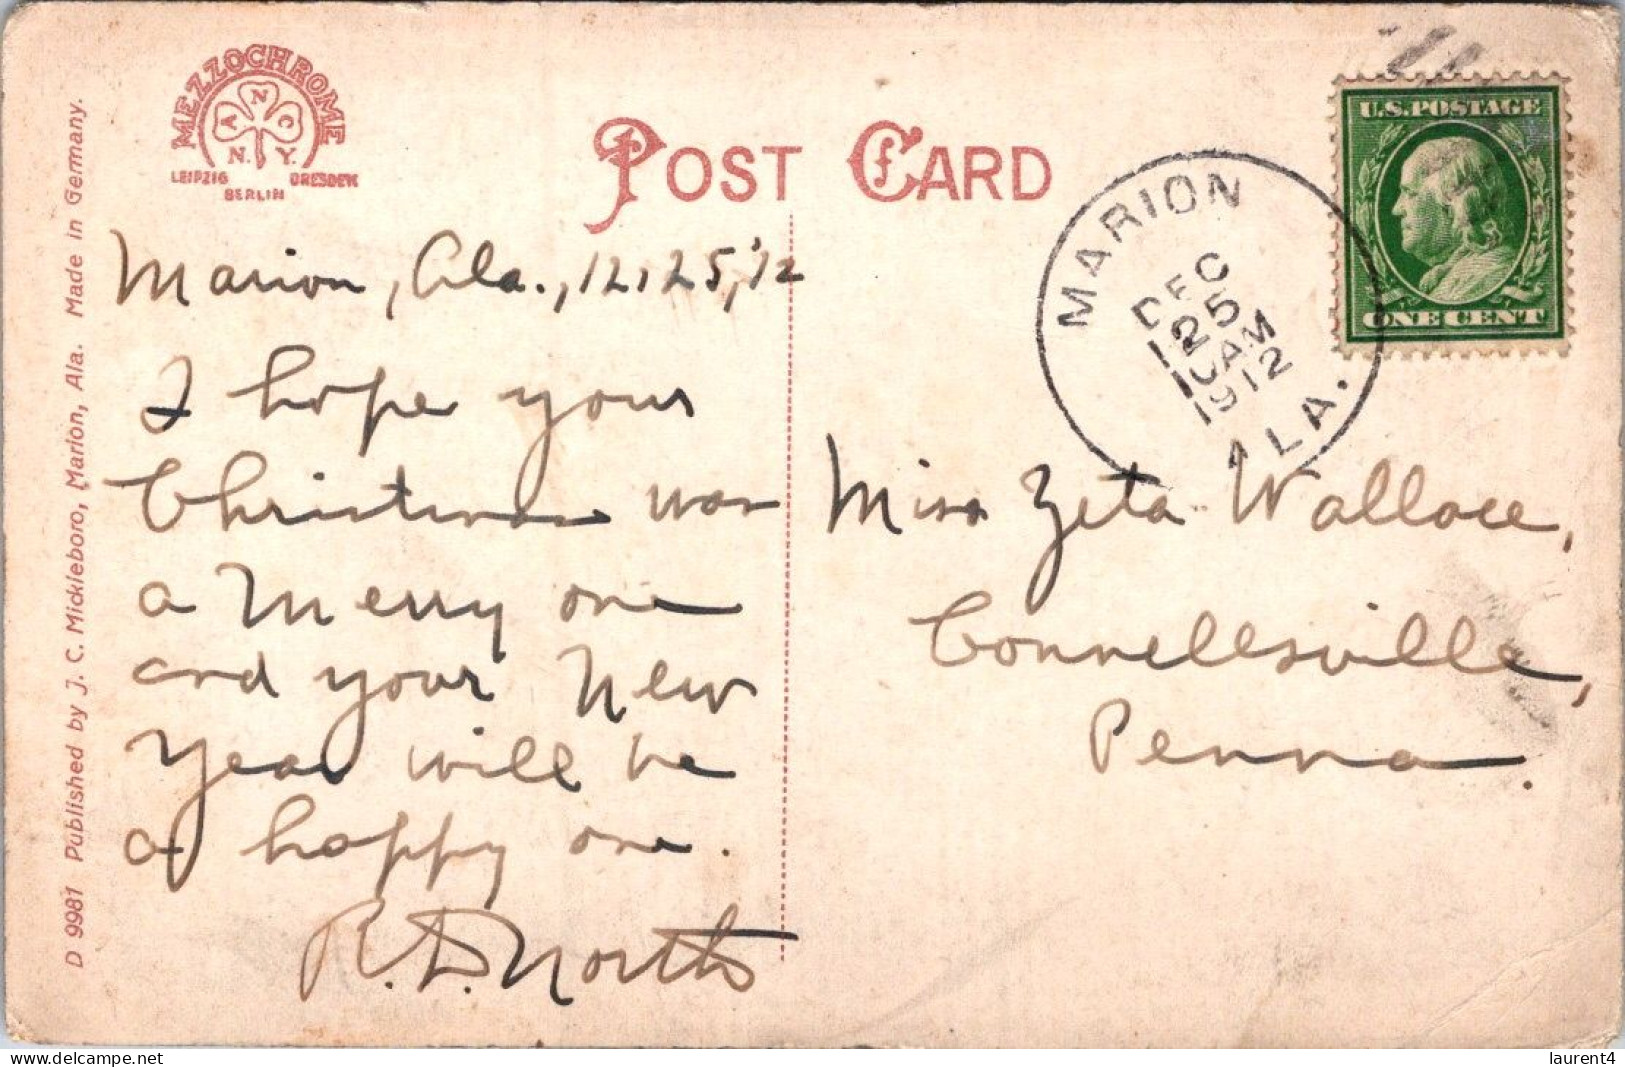 MEZZOCHROME
A N C
N. Y.
LEIPZIG DRESDEN
BERLIN
POST CARD
U.S. POSTAGE
ONE CENT
MARION
DEC
25
10AM
1912
ALA.
Marion, Ala., 12, 25, '12
I hope your
Christmas was
a Merry one
and your New
Year will be
a happy one.
R. D. North
Miss Zeta Wallace,
Connellsville,
Penna.
D 9981 Published by J. C. Mickleboro, Marion, Ala. Made in Germany.
laurent4